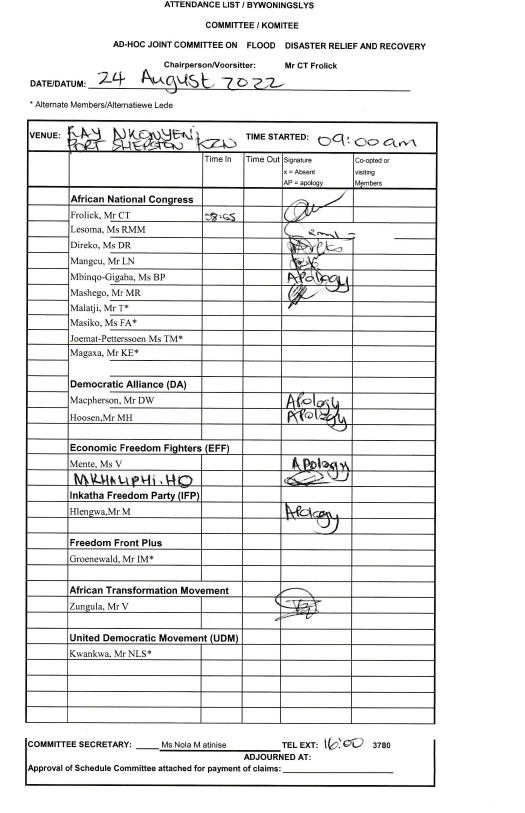 ATTENDANCE LIST / BYWONINGSLYS
COMMITTEE / KOMITEE
AD-HOC JOINT COMMITTEE ON FLOOD DISASTER RELIEF AND RECOVERY
Chairperson/Voorsitter: Mr CT Frolick
DATE/DATUM: 24 August 2022
* Alternate Members/Alternatiewe Lede
VENUE: RAY NKONYENI TIME STARTED: 09:00am
PORT SHEPSTON KZN
Time In Time Out Signature Co-opted or
x = Absent visiting
AP = apology Members
African National Congress
Frolick, Mr CT
Lesoma, Ms RMM
Direko, Ms DR
Mangcu, Mr LN
Mbinqo-Gigaba, Ms BP Apology
Mashego, Mr MR
Malatji, Mr T*
Masiko, Ms FA*
Joemat-Petterssoen Ms TM*
Magaxa, Mr KE*
Democratic Alliance (DA)
Macpherson, Mr DW Apology
Hoosen,Mr MH Apology
Economic Freedom Fighters (EFF)
Mente, Ms V Apology
MKHALIPHI.HO
Inkatha Freedom Party (IFP)
Hlengwa,Mr M Apology
Freedom Front Plus
Groenewald, Mr IM*
African Transformation Movement
Zungula, Mr V
United Democratic Movement (UDM)
Kwankwa, Mr NLS*
COMMITTEE SECRETARY: Ms Nola M atinise TEL EXT: 16:00 3780
ADJOURNED AT:
Approval of Schedule Committee attached for payment of claims: